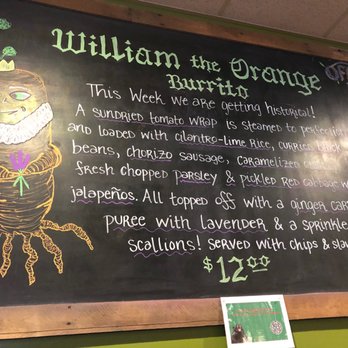 William the Orange
Burrito
This Week we are getting historical!
A sundried tomato wrap is steamed to
and loaded with cilantro-lime rice, curried black
beans, chorizo sausage, caramelized
fresh chopped parsley & pickled red cabbage
jalapeños. All topped off with a ginger
puree with lavender & a sprinkle
scallions! served with chips & slaw
$12.00